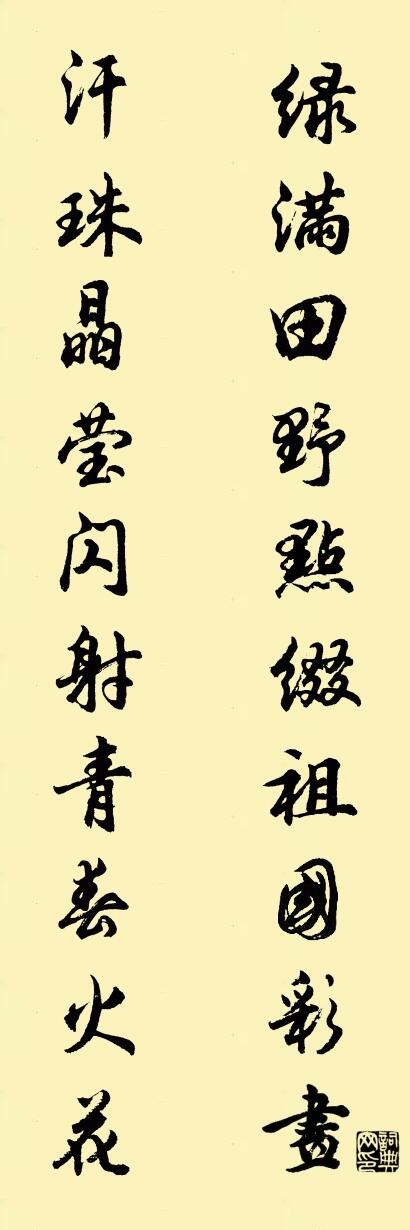 绿满田野點缀祖國彩畫
汗珠晶莹闪射青春火花
詞典网印